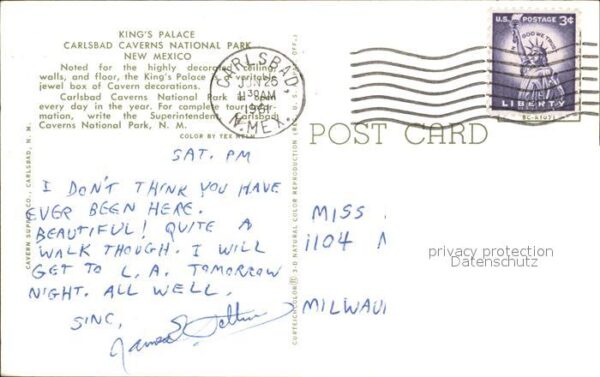 KING'S PALACE
CARLSBAD CAVERNS NATIONAL PARK
NEW MEXICO
Noted for the highly decorated ceiling,
walls, and floor, the King's Palace is a veritable
jewel box of Cavern decorations.
Carlsbad Caverns National Park is open
every day in the year. For complete tour infor-
mation, write the Superintendent, Carlsbad
Caverns National Park, N. M.
COLOR BY TEX HELM
CAVERN SUPPLY CO., CARLSBAD, N. M.
SAT. PM
I DON'T THINK YOU HAVE
EVER BEEN HERE.
BEAUTIFUL! QUITE A
WALK THOUGH. I WILL
GET TO L.A. TOMORROW
NIGHT. ALL WELL.
SINC,
CURTEICHCOLOR 3-D NATURAL COLOR REPRODUCTION
CARLSBAD,
JUN 26
AM
1961
N. MEX.
U.S. POSTAGE 3¢
IN GOD WE TRUST
LIBERTY
POST CARD
MISS
1104
privacy protection
Datenschutz
MILWAU